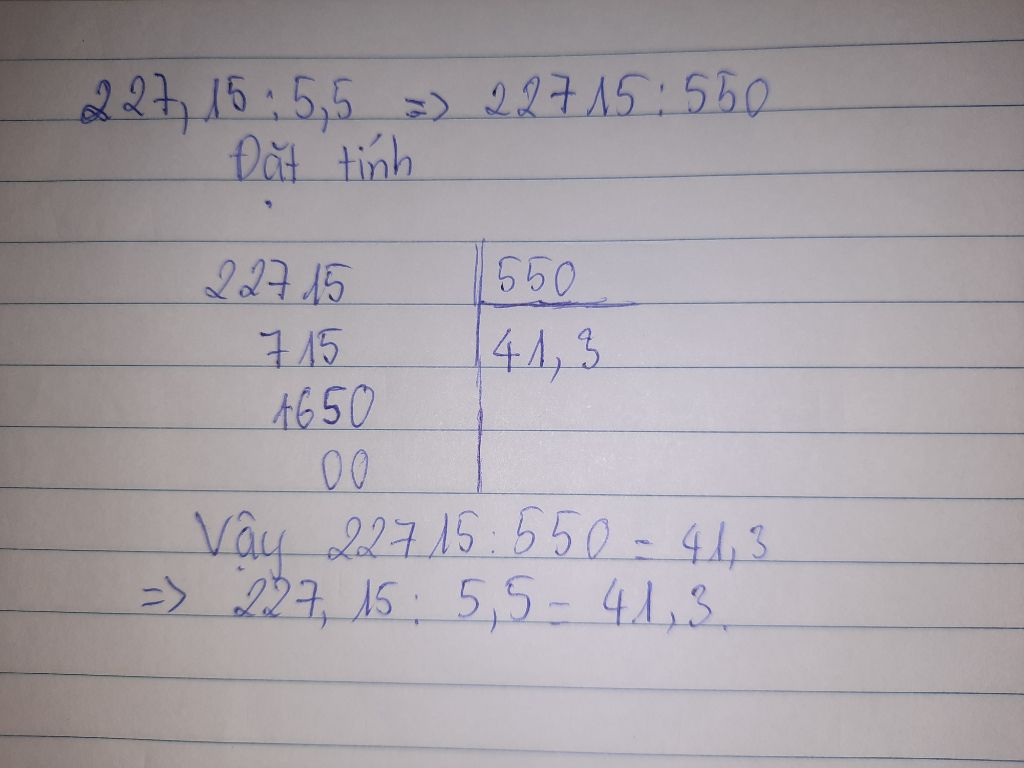 227,15 : 5,5 => 22715 : 550
Đặt tính
22715 550
715 41,3
1650
00
Vậy 22715 : 550 = 41,3
=> 227,15 : 5,5 = 41,3.